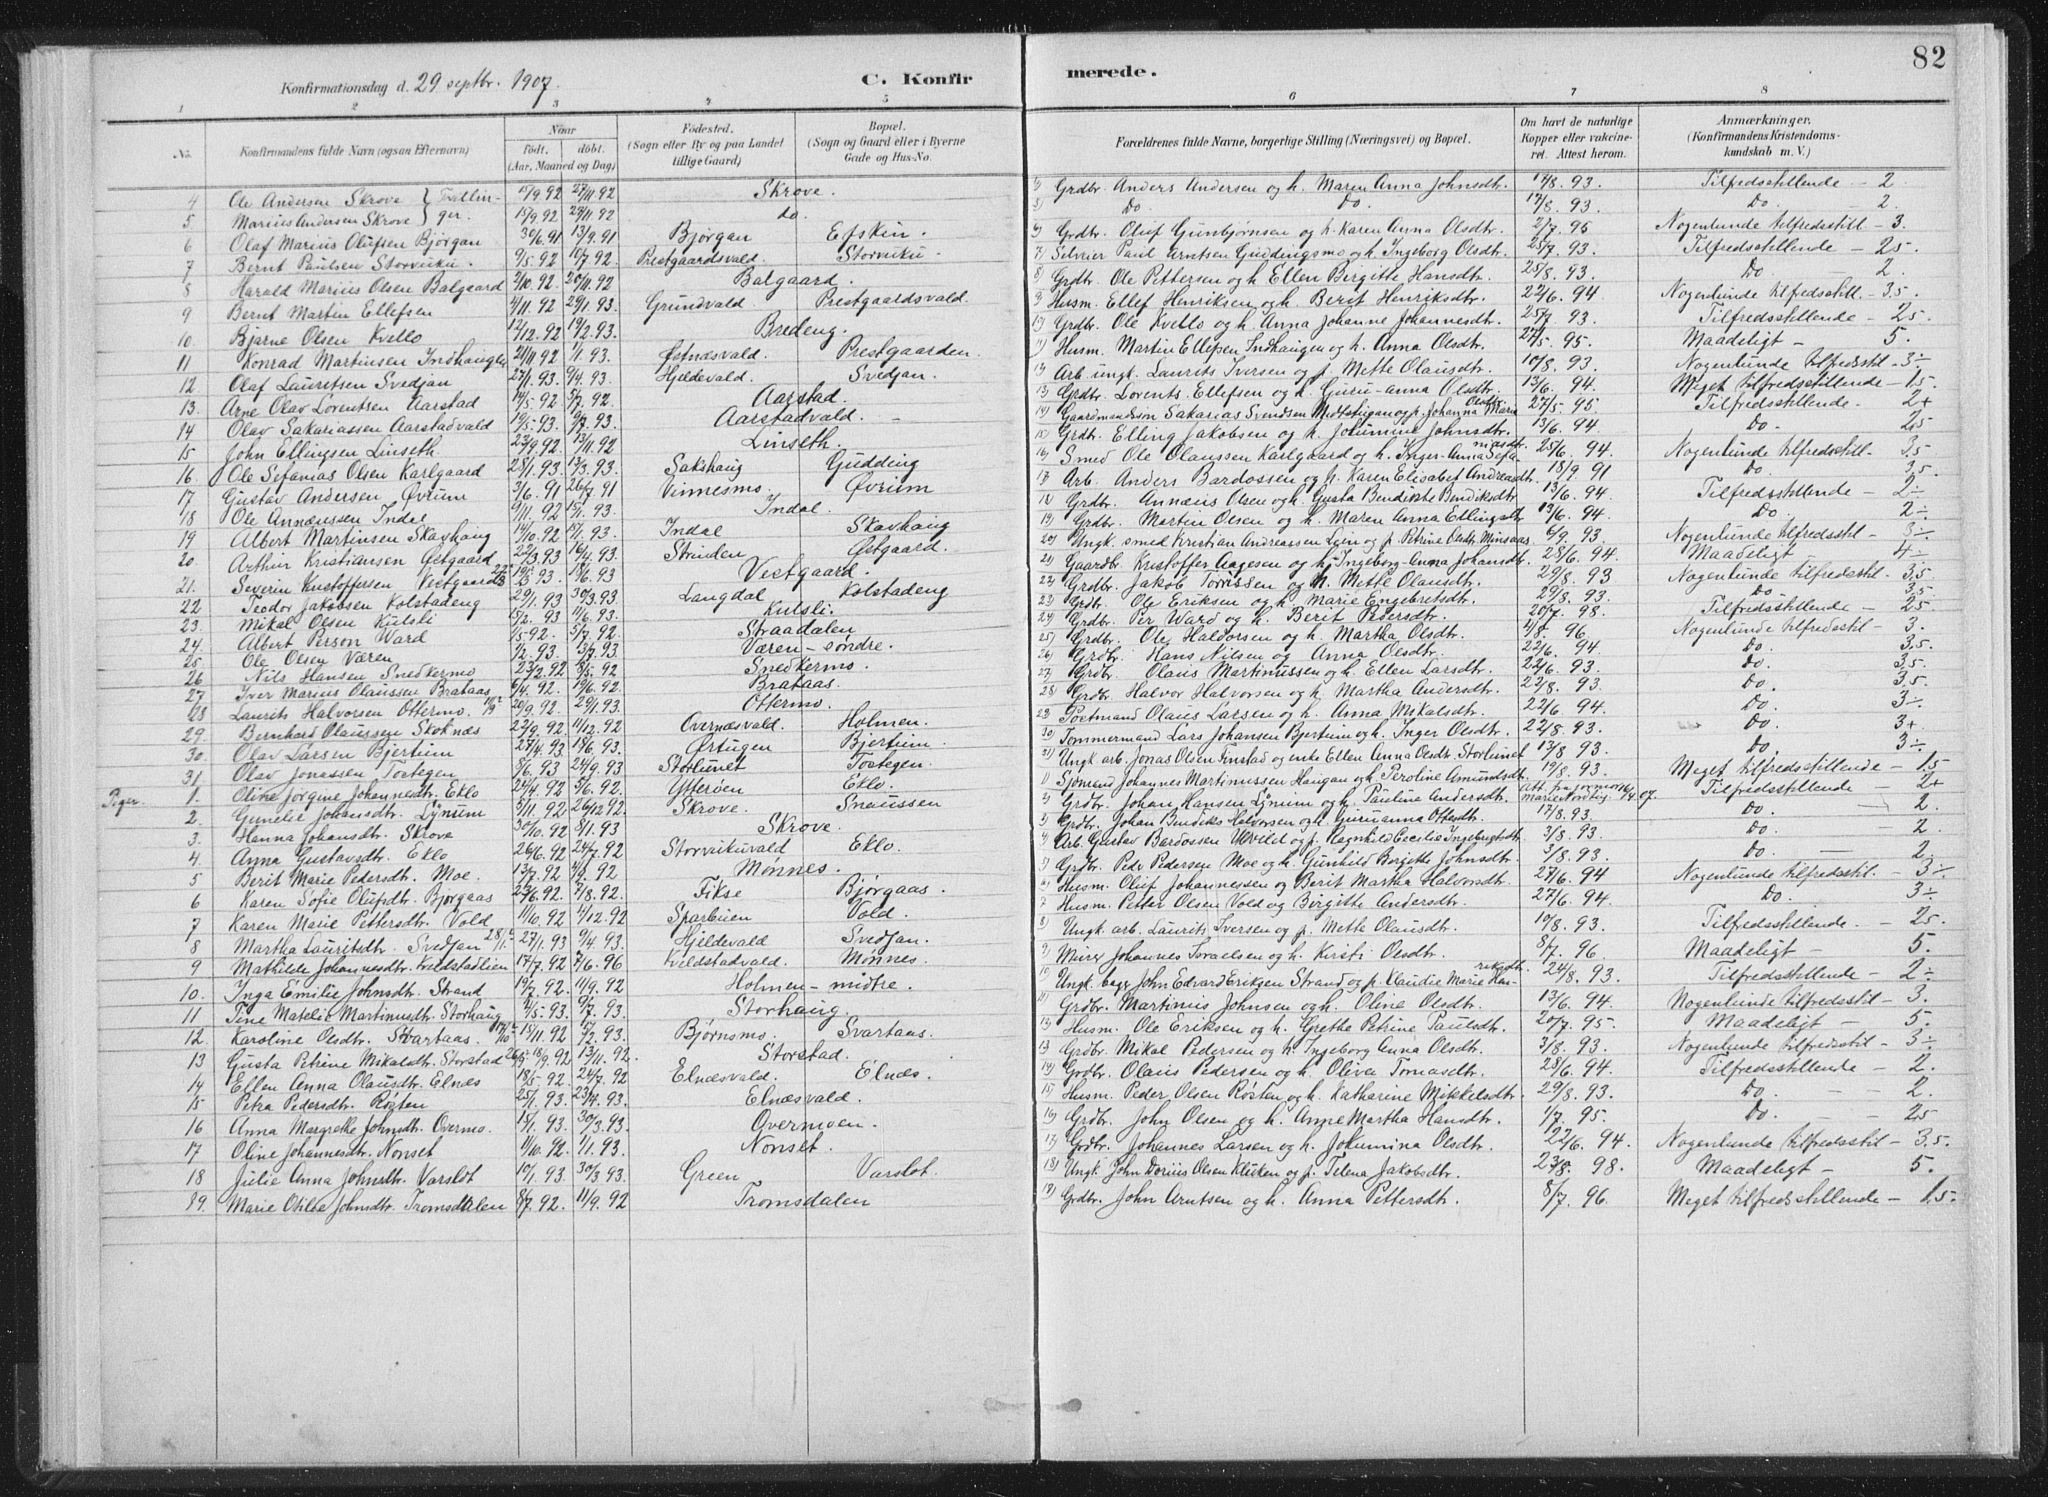 82
Konfirmationsdag d. 29 septbr. 1907. C. Konfirmerede.
1 2 3 4 5 6 7 8
No. Konfirmandens fulde Navn (ogsaa Efternavn) Naar født. døbt. (Aar, Maaned og Dag) Fødested. (Sogn eller By og paa Landet tillige Gaard) Bopæl. (Sogn og Gaard eller i Byerne Gade og Hus-No. Forældrenes fulde Navne, borgerlige Stilling (Næringsvei) og Bopæl. Om havt de naturlige Kopper eller vakcineret. Attest herom. Anmærkninger. (Konfirmandens Kristendomskundskab m. V.)
4 Ole Andersen Skrove } Tvillin- 15/9 92 27/11 92 Skrove. Grdbr. Anders Andersen og h. Maren Anna Johnsdtr. 17/8. 93. Tilfredsstillende - 2.
5 Marius Andersen Skrove } ger. 15/9 92 27/11 92 do. Do. Do. 17/8. 93. Do - 2.
6 Olaf Marius Olufsen Bjørgan 30/6. 91 13/9. 91 Bjørgan Efskin. Grdbr. Oluf Gunbjørnsen og h. Karen Anna Olsdtr. 2/7. 95 Nogenlunde tilfredsstil. - 3.
7 Bernt Paulsen Storviku. 9/5. 92 10/7. 92 Prestgaardsvald. Storviku. Selveier Paul Arntsen Guddingsmo og h. Ingeborg Olsdtr. 25/7. 93. Tilfredsstillende - 2.5
8 Harald Marius Olsen Balgaard 2/10. 92 20/11. 92 Balgaard. Grdbr. Ole Pettersen og h Ellen Bergitte Hansdtr. 25/8. 93. Do 2.
9 Bernt Marten Ellefsen 4/11. 92 29/1. 93. Grundvald. Prestgaardsvald. Husm. Ellef Henriksen og h. Berit Henriksdtr. 22/6. 94 Nogenlunde tilfredsstil. - 3.5
10 Bjarne Olsen Kvello 12/12. 92 19/2. 93. Bredeng. Grdbr. Ole Kvello og h. Anna Johanne Johannesdtr. 25/7. 93. Tilfredsstillende - 2.5.
11 Konrad Martinsen Indhaugen 21/11 92 1/1. 93. Østnæsvald. Prestgaarden. Husm. Martin Ellefsen Indhaugen og h. Anna Olsdtr. 27/5. 95. Maadeligt - 5.
12 Olaf Lauritsen Svedjan 27/1. 93. 9/4. 93. Hjeldevald. Svedjan. Arb. ungk. Laurits Iversen og p. Mette Olausdtr. 10/8. 93 Nogenlunde tilfredsstil. 3÷
13. Arne Olav Lorentsen Aarstad 14/5. 92 5/7. 92. Aarstad. Grdbr. Lorents Ellefsen og h. Guru-anna Olsdtr. 13/6. 94. Meget tilfredsstillende - 1.5
14 Olav Sakariassen Aarstadvald 19/5. 93. 9/7. 93. Aarstadvald. Gaardmandssøn Sakarias Svendsen Midtstugan og p. Johanna Marie Olsdtr 27/5. 95 Tilfredsstillende. 2+
15 John Ellingsen Linseth 23/9. 92. 13/11. 92 Linseth. Grdbr. Elling Jakobsen og h. Johumine Johnsdtr. 13/6. 94. Do. 2.5
16. Ole Sefanias Olsen Karlgaard 25/1. 93. 13/3. 93. Sakshaug Gudding Smed Ole Olaussen Karlgaard og h. Inger-Anna Sefaniasdtr. 25/6. 94. Nogenlunde tilfredsstil. - 3.5
17 Gustav Andersen, Øvrum 3/6. 91 26/7. 91 Vinnesmo. Øvrum Arb. Anders Bardossen og h. Karen Elisabet Andreasdtr. 18/9 91 Do 3.5.
18 Ole Annæussen Indal 9/11. 92 15/1. 93. Indal. Grdbr. Annæus Olsen og h. Gusta Bendikte Bendiksdtr 13/6. 94. Tilfredsstillende - 2÷
19 Albert Martinsen Skavhaug 14/10. 92 15/1. 93. Indal Skavhaug Grdbr. Marten Olsen og h. Maren Anna Ellingsdtr 13/6. 94. Do 2÷
20 Arthur Kristiansen Østgaard 22/3. 93 16/4. 93. Strinden Østgaard. Ungk. smed Kristian Andreassen Lein og p. Petrine Olsdtr. Minsaas 6/9. 93. Nogenlunde tilfredsstil - 3÷
21. Severin Kristoffersen Vestgaard 93 18/6. 93 Vestgaard. Gaardbr. Kristoffer Aagesen og h. Ingeborg Anna Johansdtr. 28/6. 94. Maadeligt - 4÷
22 Teodor Jakobsen Kolstadeng 29/1. 93. 30/3. 93. Langdal Kolstadeng Grdbr. Jakob Torrissen og h. Mette Olausdtr. 29/8. 93 Nogenlunde tilfredsstil. 3.5
23. Mikal Olsen Kulsli 15/2. 93 11/6. 93. Kulsli. Grdbr. Ole Eriksen og h. Marie Engebretsdtr. 29/8. 93. Do. 3.5.
24 Albert Person Ward 1/5 92. 5/7. 92. Straadalen Grdbr. Per Ward og h. Berit Pedersdtr. 20/7. 98. Tilfredsstillende - 2.5
25 Ole Olsen Væren 1/2. 93. 13/7. 93 Væren - søndre. Grdbr. Ole Haldorsen og h. Martha Olsdtr. 4/8. 96 Nogenlunde tilfredsstil - 3.
26 Nils Hansen Snedkermo 23/2. 92 8/5. 92 Snedkermo. Grdbr. Hans Nilsen og Anna Olsdtr. 22/6. 94. Do. 3.5.
27. Iver Marius Olaussen Brataas 6/4. 92. 19/6. 92. Brataas. Grdbr. Olaus Martinussen og h. Ellen Larsdtr. 22/6. 93. Do. 3.5
28 Laurits Halvorsen Ottermo. 20/9. 92. 29/1. 93. Ottermo. Grdbr. Halvor Halvorsen og h. Martha Andersdtr. 22/8. 93. Do. 3.5
29. Bernhard Olaussen Skoknæs 22/9. 92 11/12. 92 Overnæsvald. Holmen. Postmand Olaus Larsen og h. Anna Mikalsdtr. 22/6. 94. Do. 3÷
30. Olav Larsen Bjertum 27/4. 93 18/6. 93. Ørtugen Bjertum. Tømmermand Lars Johansen Bjertum og h. Inger Olsdtr. 22/8. 93. Do. 3+
31 Olav Jonassen Tostegen 8/6. 93 24/9. 93 Storlunet Tostegen. Ungk arb. Jonas Olsen Finstad og enke Ellen Anna Olsdtr Storlunet 13/8. 93. Do. 3÷
Piger. 1. Oline Jørgine Johannesdtr. Eklo 24/4. 92 5/6. 92 Ytterøen Eklo. Sjømand Johannes Martinussen Haugan og h. Peroline Amundsdtr. 19/8. 93. Meget tilfredsstillende - 1.5
2. Gunelie Johansdtr. Lynum 5/11. 92 26/12 92. Skrove. Snaussen Grdbr. Johan Hansen Lynum og h. Paulina Andersdtr. Att. fra jormor Marie Nordbrg 16/4. 07. Tilfredsstillende - 2+
3. Hanna Johansdtr. Skrove 30/10. 92 8/1. 93 Skrove. Grdbr. Johan Bendiks Halvorsen og h. Guruanna Ottesdtr. 17/8. 93. Do. 2.
4. Anna Gustavsdtr. Eklo 26/6. 92 24/7. 92 Storvikuvald Eklo. Arb. Gustav Bardossen Ulvild og p. Ragnhild Cecilie Ingebrigtsdtr. 3/8. 93. Do. - 2
5 Berit Marie Pedersdtr. Moe. 13/7. 92 4/9. 92 Mønnes. Grdbr. Pedr Pedersen Moe og h. Gunhild Bergitte Johnsdtr. 3/8. 93. Do. 2.
6 Karen Sofie Olufsdtr. Bjørgaas 23/6. 92. 7/8. 92. Fikse Bjørgaas. Husm. Oluf Johannessen og Berit Martha Halvorsdtr. 27/6. 94 Nogenlunde tilfredsstil. - 3÷
7 Karen Marie Pettersdtr. Vold 11/10. 92 4/12. 92 Sparbuen Vold. Husm. Petter Olsen Vold og Bergitte Andersdtr. 27/6. 94. Do. 3÷
8 Martha Lauritsdtr. Svedjan 27/1. 93 9/4. 93. Hjeldevald Svedjan. Ungk. arb. Laurits Iversen og p. Mette Olausdtr. 10/8. 93. Tilfredsstillende. - 2.5.
9 Mathilde Johannesdtr. Kvelstadlien 17/7. 92 7/6. 96 Kvelstadvald. Mønnes. Murer Johannes Israelsen og h. Kirsti Olsdtr. 8/7. 96. Maadeligt - 5.
10. Inga Emilie Johnsdtr. Strand 19/7. 92. 11/9. 92 Holmen - midtre. Ungk. bagr John Edvard Eriksen Strand og p. Klaudie Marie Henriksdtr. 24/8. 93. Tilfredsstillende - 2÷
11 Tine Matelie Martinusdtr. Storhaug 14/5. 93 9/7. 93 Storhaug. Grdbr. Martinus Johnsen og h. Oline Olsdtr. 13/6. 94 Nogenlunde tilfredsstil - 3.
12 Karoline Olsdtr. Svartaas. 15/11. 92 17/2. 93. Bjørnsmo. Svartaas. Husm. Ole Eriksen og h. Grethe Petrine Paulsdtr. 20/7. 95. Maadeligt - 5.
13 Gusta Petrine Mikalsdtr. Storstad 18/9 92 13/11. 92. Storstad. Grdbr. Mikal Pedersen og h. Ingeborg Anna Olsdtr. 3/8. 93. Nogenlunde tilfredsstil - 3÷
14 Ellen Anna Olausdtr. Elnæs 18/5. 92. 24/7. 92 Elnæsvald. Elnæs. Grdbr. Olaus Pedersen og h. Oliva Tomasdtr. 25/6. 94. Tilfredsstillende - 2.
15 Petra Pedersdtr. Røsten 25/1. 93. 23/4. 93 Elnæsvald. Husm. Peder Olsen Røsten og h. Katharine Mikkelsdtr. 29/8. 93. Do. 2.
16 Anna Margrethe Johnsdtr. Overmo. 15/1. 93. 30/3. 93. Overmoen. Grdbr. John Olsen og h. Anne Martha Hansdtr. 1/7. 95. Do. - - 2.5
17 Oline Johannesdtr. Nonset 11/10. 92. 1/1. 93. Nonset. Grdbr. Johannes Larsen og h. Johannina Olsdtr. 22/6. 94. Nogenlunde tilfredsstil - 3.5.
18 Julie Anna Johnsdtr. Varslot 10/1. 93. 30/3 93. Green Varslot. Ungk. John Dorius Olsen Kluken og p. Telena Jakobsdtr. 23/8. 98. Maadeligt - 5.
19. Marie Otilde Johnsdtr. Tromsdalen 8/7. 92. 11/9. 92 Tromsdalen Grdbr. John Arntsen og h. Anna Pettersdtr. 8/7. 96. Meget tilfredsstillende - 1.5.